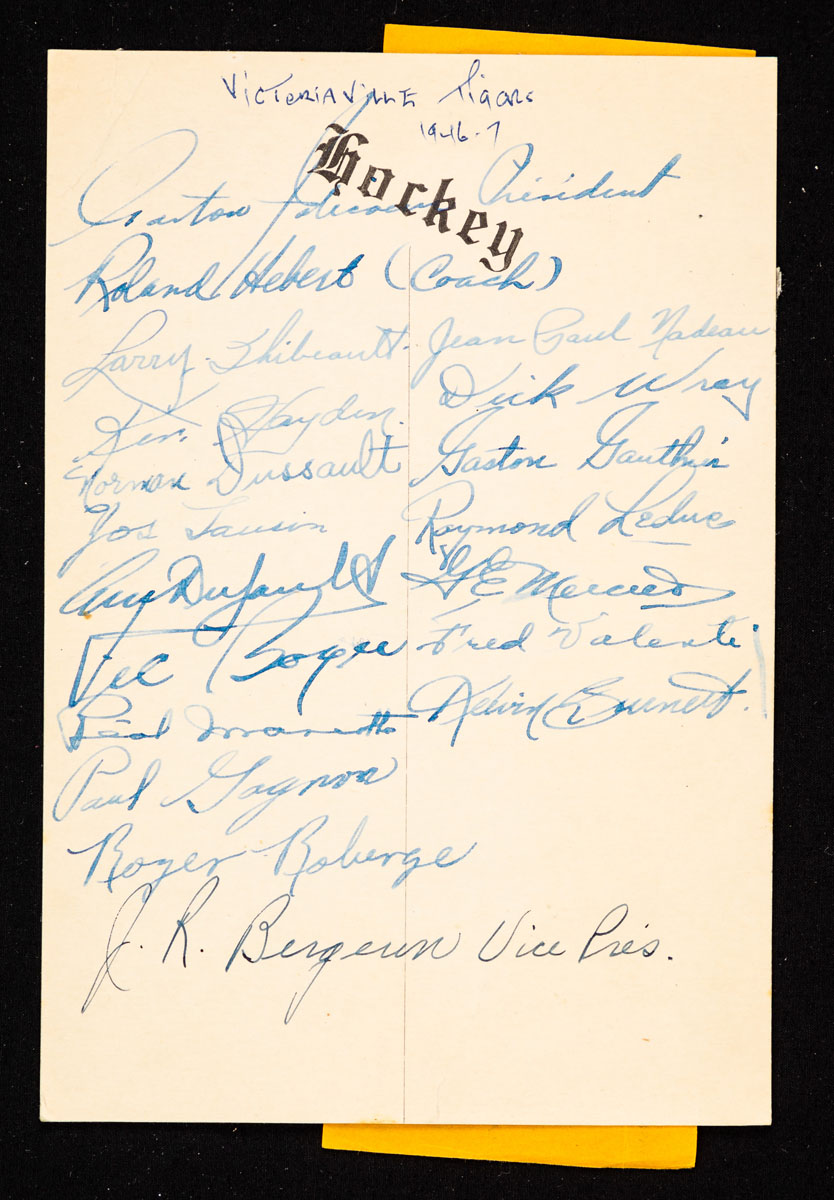 VICTORIAVILLE Tigers
1946-7
Hockey
Gaston Président
Roland Hebert (Coach)
Larry Thibeault Jean Paul Nadeau
Ken Hayden Dick Wray
Norman Dussault Gaston Gauthier
Jos Lauson Raymond Leduc
Guy Dufault G E Mercier
Vic Boyce Fred Valenti
Réal Kelvin Burnett.
Paul Gagnon
Roger Roberge
J. R. Bergeron Vice Prés.